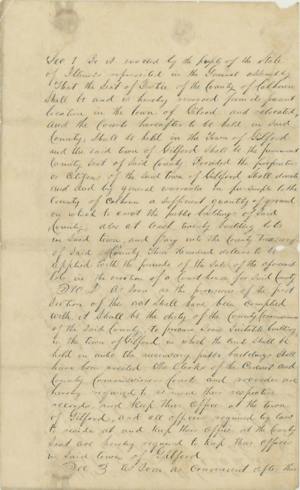 Sec 1 Be it enacted by the people of the State
of Illinois represented in the General assembly
That the Seat of Justice of the County of Calhoun
shall be and is hereby removed from its present
location in the town of and relocated,
and the Courts hereafter to be held in said
County, shall be held in the Town of Gilford
and the said town of Gilford shall be the permanent
County seat of said County Provided the proprietors
or Citizens of the said town of Gilford shall donate
and deed by general warrantee in fee simple to the
County of Calhoun a sufficient quantity of ground
on which to erect the public buildings of said
County, also at least twenty building lots
in said town and pay into the County Treasury
of said County Two Thousand dollars to be
applied with the proceeds of the sale of the aforesaid
lots in the erection of a Court house for said County
Sec 2 As soon as the provisions of the first
Section of this act shall have been complied
with, it shall be the duty of the County Commissioners
of the said County to procure some suitable building
in the town of Gilford in which the Courts shall be
held in until the necessary public buildings shall
have been erected. The Clerks of the Circuit and
County Commissioners Court and recorder are
hereby required to remove their respective
records and keep their offices at the town
of Gilford, and all officers required by law
to reside at and keep their offices at the County
Seat are hereby required to keep their offices
in said town of Gilford
Sec 3 As soon as Convenient after this